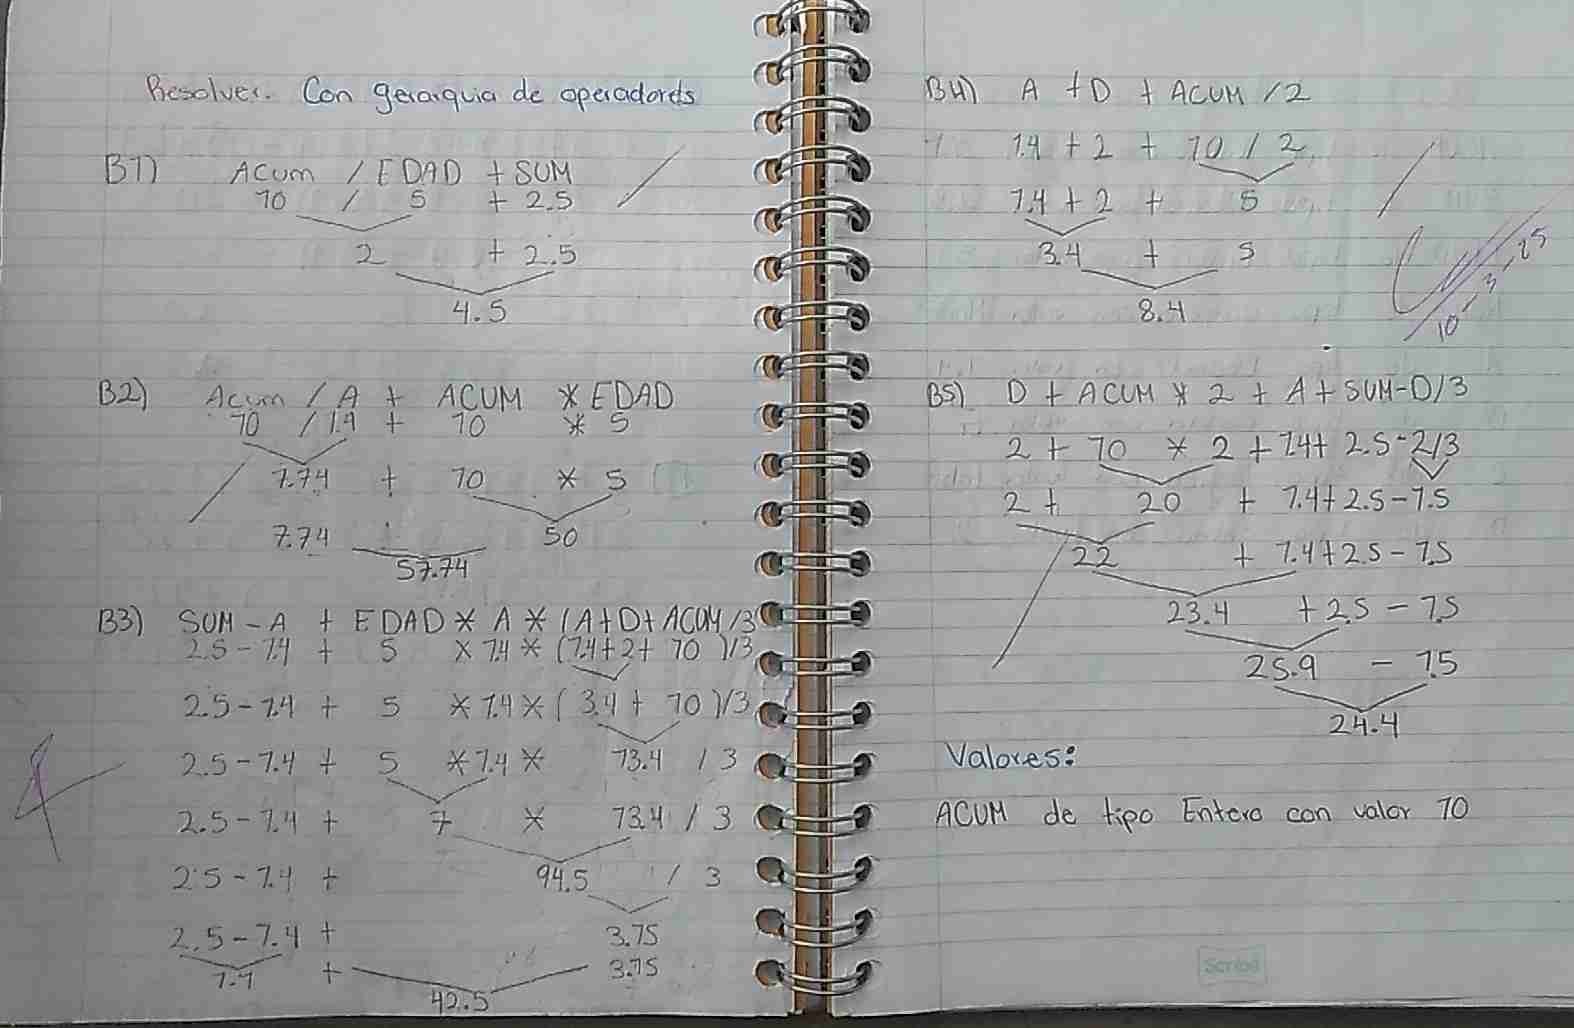 Resolver. Con gerarquia de operadores
B1) Acum / EDAD + SUM
10 / 5 + 2.5
2 + 2.5
4.5
B2) Acum / A + ACUM * EDAD
10 / 1.4 + 10 * 5
7.14 + 10 * 5
7.14 + 50
57.14
B3) SUM - A + EDAD * A * (A+D+ACUM/3
2.5 - 1.4 + 5 * 1.4 * (1.4+2+ 10 )/3
2.5 - 1.4 + 5 * 1.4 * ( 3.4 + 10 )/3
2.5 - 1.4 + 5 * 1.4 * 13.4 / 3
2.5 - 1.4 + 7 * 13.4 / 3
2.5 - 1.4 + 94.5 / 3
2.5 - 1.4 + 3.75
1.1 + 3.75
42.5
B4) A + D + ACUM / 2
1.4 + 2 + 10 / 2
1.4 + 2 + 5
3.4 + 5
8.4
10-3-25
B5) D + ACUM * 2 + A + SUM - D/3
2 + 10 * 2 + 1.4 + 2.5 - 2/3
2 + 20 + 1.4 + 2.5 - 1.5
22 + 1.4 + 2.5 - 1.5
23.4 + 2.5 - 1.5
25.9 - 1.5
24.4
Valores:
ACUM de tipo Entero con valor 10
Scribe